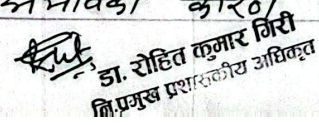 कारण
डा. रोहित कुमार गिरी
नि.प्रमुख प्रशासकीय अधिकृत